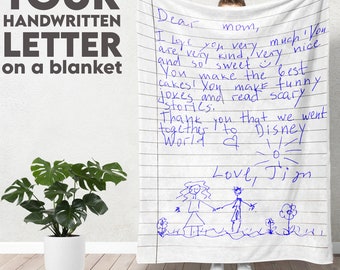 YOUR
HANDWRITTEN
LETTER
on a blanket
Dear mom,
I love you very much! You
are very kind, very nice
and so sweet
You make the best
cakes! You make funny
jokes and read scary
stories.
Thank you that we went
together to Disney
World
Love,